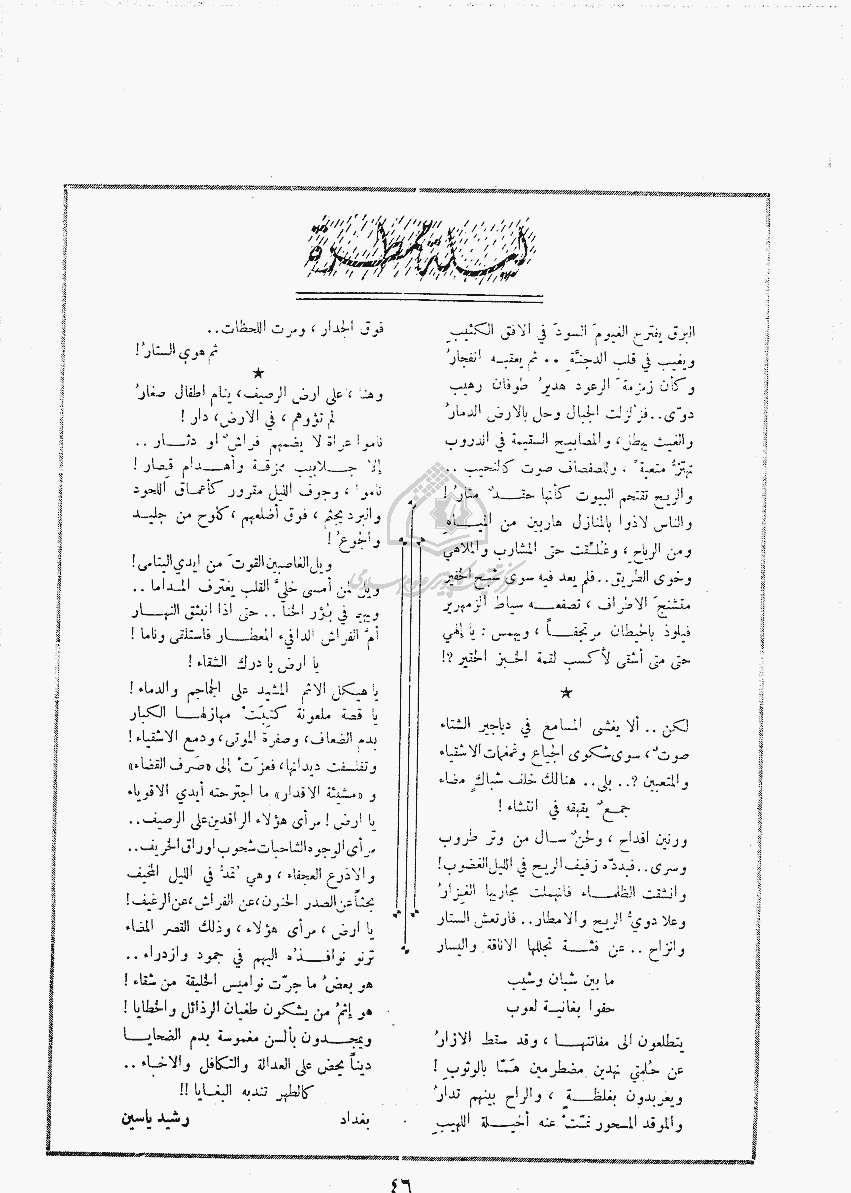 ليلة ممطرة
البرق يفترع الغيومَ السودَ في الافق الكئيبِ
ويغيب في قلب الدجنَّةِ .. ثم يعقبه انفجارُ
وكأن زمزمةَ الرعود هديرُ طوفان رهيب
دوّى.. فزلزلت الجبال وحل بالارض الدمارُ
والغيث يهطل، والمصابيح السقيمة في الدروب
تهتزُّ متعبةً ، والصفصاف صوت كالنحيب ..
والريح تقتحم البيوت كأنها حقدٌ مثارُ !
والناس لاذوا بالمنازل هاربين من المياهِ
ومن الرياح ، وغلّقت حتى المشارب والملاهي
وخوى الطريق.. فلم يعد فيه سوى شبح الخفير
متشنج الاطراف ، تصفعه سياط الزمهرير
فيلوذ بالحيطان مرتجفاً ، ويهمس : يا إلهي
حتى متى أشقى لأكسب لقمة الخبز الحقير ؟!
★
لكن .. ألا يغشى المسامع في دياجير الشتاء
صوتٌ ، سوى شكوى الجياع وغمغمات الاشقياء
والمتعبين ؟.. بلى.. هنالك خلف شباكٍ مضاء
جمعٌ يقهقه في انتشاء !
ورنين اقداح ، ولحنٌ سال من وتر طروب
وسرى.. فبدده زفيف الريح في الليل الغضوب!
وانشقت الظلماء فانهملت مجاريها الغزارُ
وعلا دويُّ الريح والامطار.. فارتعش الستار
وانزاح .. عن فئة تجللها الاناقة واليسار
ما بين شبان وشيب
حفوا بغانية لعوب
يتطلعون الى مفاتنها ، وقد سقط الازارُ
عن حلمتي نهدين مضطرمين همّا بالوثوبِ !
ويعربدون بغلظةٍ ، والراح بينهم تدارُ
والموقد المسحور نمّت عنه أخيلة اللهيبِ
فوق الجدار ، ومرت اللحظات..
ثم هوى الستارُ!
★
وهنا ، على ارض الرصيف، ينام اطفال صغارُ
لم تؤوهم ، في الارض، دار !
ناموا عراة لا يضمهم فراشٌ او دثار ..
إلا جلابيب ممزقة وأهدام قصار !
ناموا ، وجوف الليل مقرور كأعماق اللحود
والبرد يجثم ، فوق أضلعهم ، كلوح من جليد
والجوعُ !
ويل الغاصبين القوتَ من أيدي اليتامى!
ويل لمن أمسى خليَّ القلب يغترف المداما ..
ويهيم في بؤر الخنا .. حتى اذا انبثق النهار
أمَّ الفراش الدافيء المعطار فاستلقى وناما !
يا ارض يا درك الشقاء !
يا هيكل الاثم المشيد على الجماجم والدماء !
يا قصة ملعونة كتبت مهازلها الكبار
بدم الضعاف، وصفرة الموتى، ودمع الاشقياء !
وتفلسفت ديدانها، فعزت إلى «صرف القضاء»
و «مشيئة الاقدار» ما اجترحته أيدي الاقوياء
يا ارض ! مرأى هؤلاء الراقدين على الرصيف..
مرأى الوجوه الشاحبات شحوب اوراق الخريف..
والاذرع العجفاء ، وهي تمدُّ في الليل المخيف
بحثاً عن الصدر الحنون، عن الفراش، عن الرغيف!
يا ارض ، مرأى هؤلاء ، وذلك القصر المضاء
ترنو نوافذُه اليهم في جمود وازدراء ..
هو بعضُ ما جرّت نواميس الخليقة من شقاء !
هو إثمُ من يشكون طغيان الرذائل والخطايا !
ويمجدون بألسن مغموسة بدم الضحايا
ديناً يحض على العدالة والتكافل والاخاء ..
كالطهر تندبه البغايا !!
بغداد
رشيد ياسين
٤٦